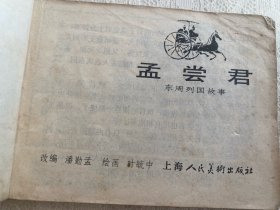 孟尝君
东周列国故事
改编 潘勤孟 绘画 毓中 上海人民美術出版社